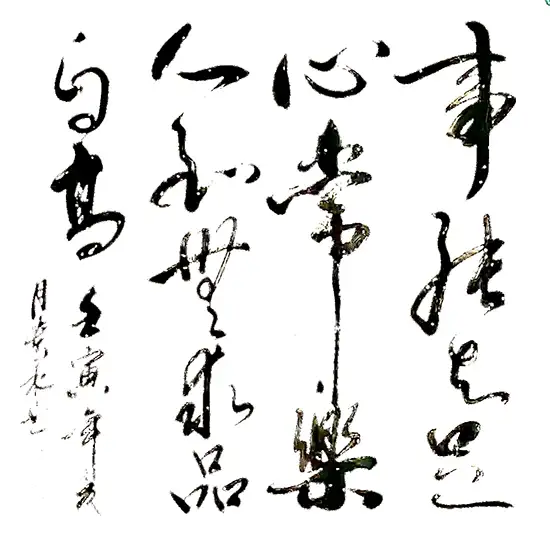 事能知足
心常樂
人到無求品
自高
壬寅年
月